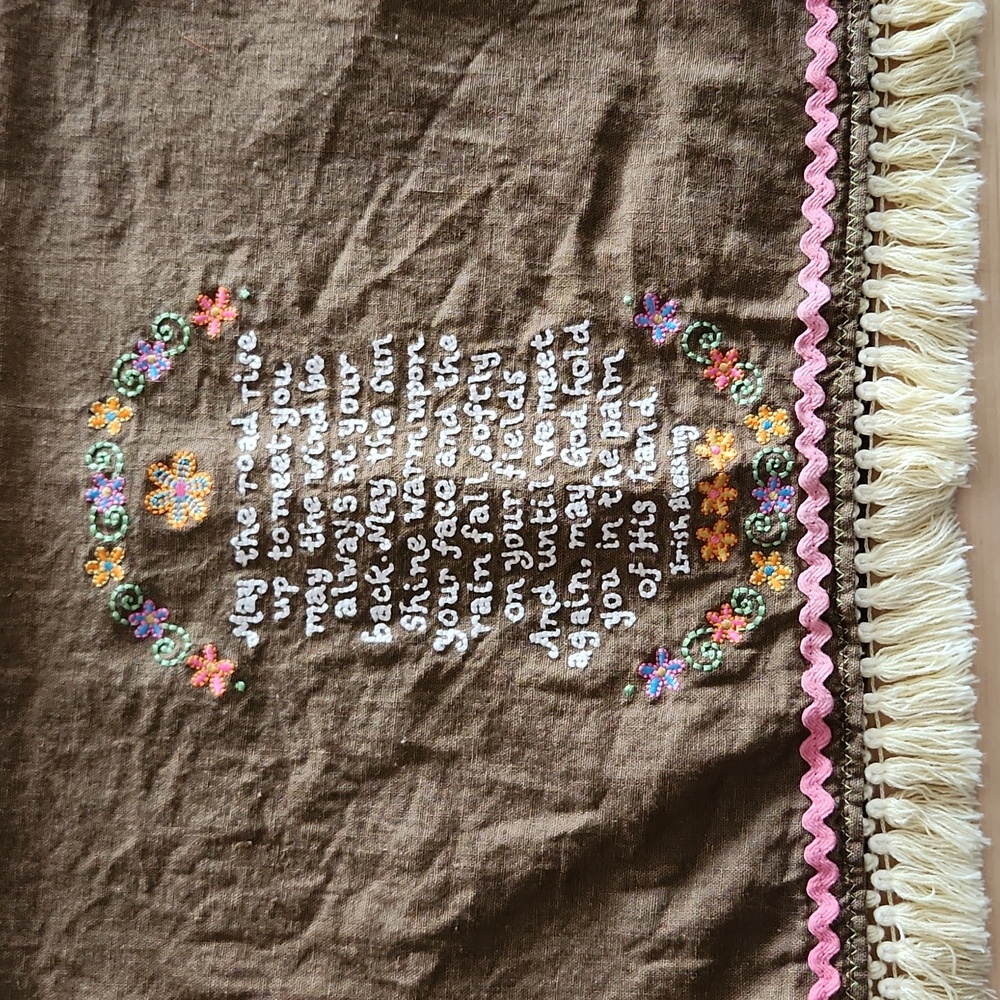 May the road rise
up to meet you
may the wind be
always at your
back. May the sun
shine warm upon
your face and the
rain fall softly
on your fields
And until we meet
again, may God hold
you in the palm
of His hand.
Irish Blessing